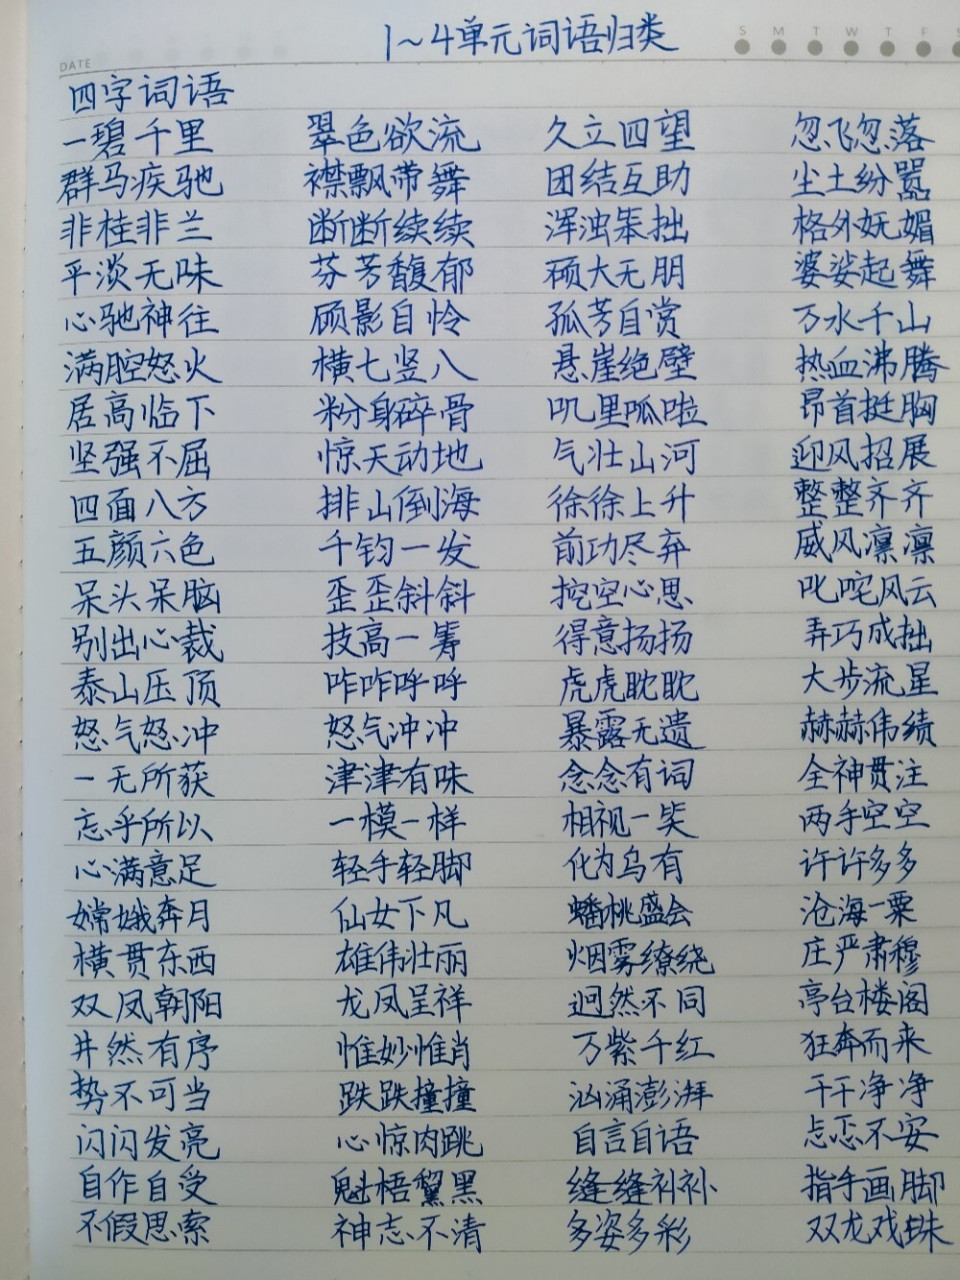 1~4单元词语归类
S M T W T F S
DATE
四字词语
一碧千里 翠色欲流 久立四望 忽飞忽落
群马疾驰 襟飘带舞 团结互助 尘土纷嚣
非桂非兰 断断续续 浑浊笨拙 格外妩媚
平淡无味 芬芳馥郁 硕大无朋 婆娑起舞
心驰神往 顾影自怜 孤芳自赏 万水千山
满腔怒火 横七竖八 悬崖绝壁 热血沸腾
居高临下 粉身碎骨 叽里呱啦 昂首挺胸
坚强不屈 惊天动地 气壮山河 迎风招展
四面八方 排山倒海 徐徐上升 整整齐齐
五颜六色 千钧一发 前功尽弃 威风凛凛
呆头呆脑 歪歪斜斜 挖空心思 叱咤风云
别出心裁 技高一筹 得意扬扬 弄巧成拙
泰山压顶 咋咋呼呼 虎虎眈眈 大步流星
怒气怒冲 怒气冲冲 暴露无遗 赫赫伟绩
一无所获 津津有味 念念有词 全神贯注
忘乎所以 一模一样 相视一笑 两手空空
心满意足 轻手轻脚 化为乌有 许许多多
嫦娥奔月 仙女下凡 蟠桃盛会 沧海一粟
横贯东西 雄伟壮丽 烟雾缭绕 庄严肃穆
双凤朝阳 龙凤呈祥 迥然不同 亭台楼阁
井然有序 惟妙惟肖 万紫千红 狂奔而来
势不可当 跌跌撞撞 汹涌澎湃 干干净净
闪闪发亮 心惊肉跳 自言自语 忐忑不安
自作自受 魁梧黧黑 缝缝补补 指手画脚
不假思索 神志不清 多姿多彩 双龙戏珠